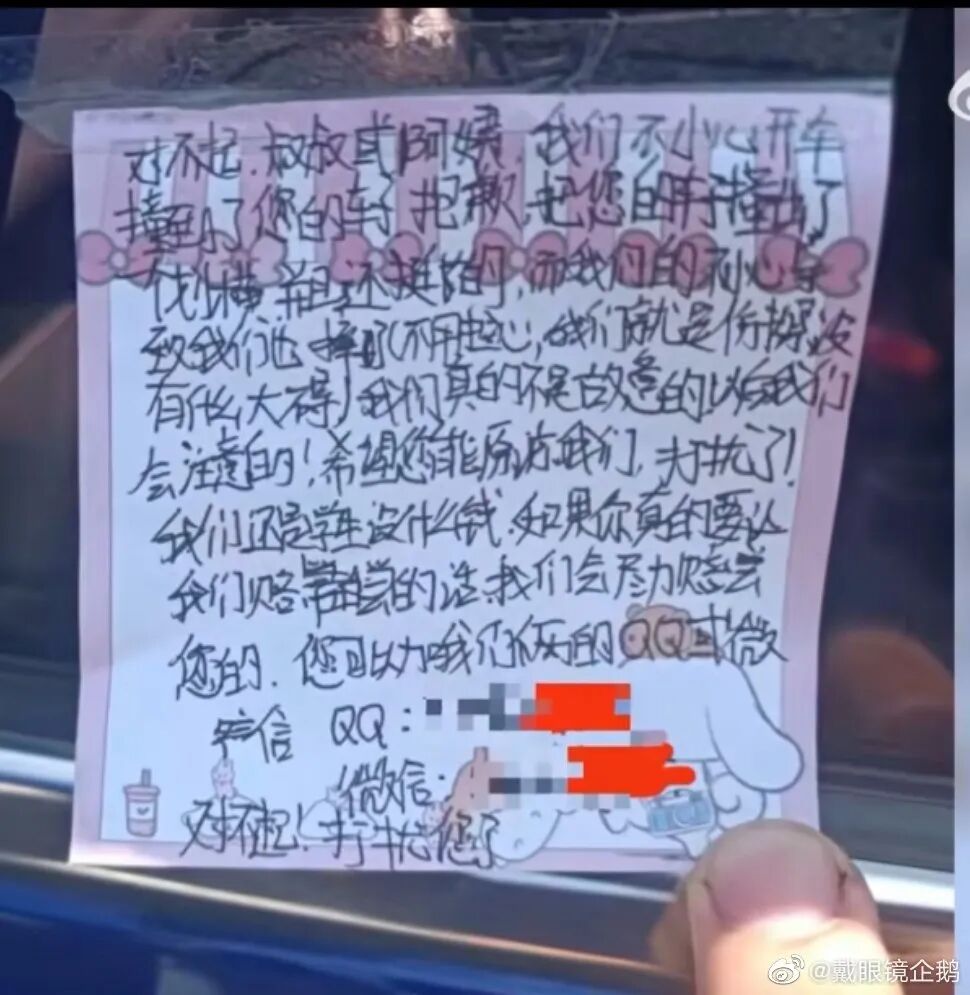 对不起.叔叔或阿姨.我们不小心开车
撞到了您的车子抱歉,把您的车子撞出了
还挺 的,而我们的不小心导
致我们也摔了(不用担心,我们就是 没
有什么大碍)我们真的不是故意的!以后我们
会注意的!希望您能原谅我们,打扰了!
我们还是学生没什么钱.如果你真的要让
我们赔 偿的话.我们会尽力赔偿
您的.您可以加我们俩的QQ或微
信 QQ:
微信:
对不起!打扰您了
@戴眼镜企鹅